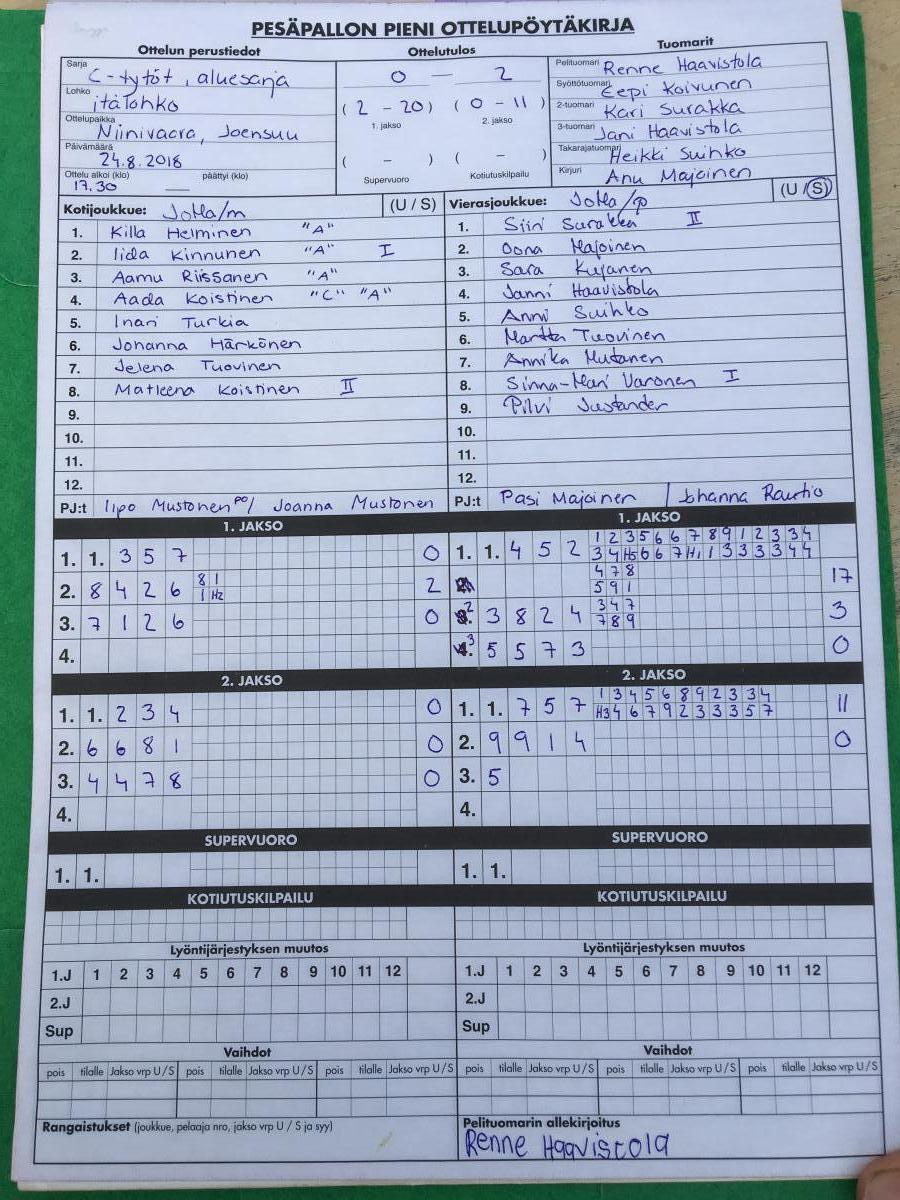 PESÄPALLON PIENI OTTELUPÖYTÄKIRJA
Ottelun perustiedot
Sarja C-tytöt, aluesarja
Lohko itälohko
Ottelupaikka Niinivaara, Joensuu
Päivämäärä 24.8.2018
Ottelu alkoi (klo) päättyi (klo)
17.30
Ottelutulos
0 — 2
( 2 - 20 ) ( 0 - 11 )
1. jakso 2. jakso
( - ) ( - )
Supervuoro Kotiutuskilpailu
Tuomarit
Pelituomari Renne Haavistola
Syöttötuomari Eepi Koivunen
2-tuomari Kari Surakka
3-tuomari Jani Haavistola
Takarajatuomari Heikki Suihko
Kirjuri Anu Majoinen
Kotijoukkue: JoMa/m (U / S)
1. Killa Helminen "A"
2. Iida Kinnunen "A" I
3. Aamu Riissanen "A"
4. Aada Koistinen "C" "A"
5. Inari Turkia
6. Johanna Härkönen
7. Jelena Tuovinen
8. Matleena Koistinen II
9.
10.
11.
12.
PJ:t Iipo Mustonen PO/ Joanna Mustonen
Vierasjoukkue: JoMa/p (U / S)
1. Siiri Surakka II
2. Oona Majoinen
3. Sara Kujanen
4. Janni Haavistola
5. Anni Suihko
6. Martta Tuovinen
7. Annika Mutanen
8. Sinna-Mari Varonen I
9. Pilvi Justander
10.
11.
12.
PJ:t Pasi Majoinen / Johanna Rautio
1. JAKSO
1. 1. 3 5 7 0
2. 8 4 2 6 8 1 2
1 H2
3. 7 1 2 6 0
4.
1. JAKSO
1 2 3 5 6 6 7 8 9 1 2 3 3 4
1. 1. 4 5 2 3 4 H5 6 6 7 H1 1 3 3 3 3 4 4
4 7 8 17
5 9 1
3 4 7
2 3 8 2 4 7 8 9 3
3 5 5 7 3 0
2. JAKSO
1. 1. 2 3 4 0
2. 6 6 8 1 0
3. 4 4 7 8 0
4.
2. JAKSO
1 3 4 5 6 8 9 2 3 3 4
1. 1. 7 5 7 H3 4 6 7 9 2 3 3 3 5 7 11
2. 9 9 1 4 0
3. 5
4.
SUPERVUORO
1. 1.
SUPERVUORO
1. 1.
KOTIUTUSKILPAILU
KOTIUTUSKILPAILU
Lyöntijärjestyksen muutos
1.J 1 2 3 4 5 6 7 8 9 10 11 12
2.J
Sup
Lyöntijärjestyksen muutos
1.J 1 2 3 4 5 6 7 8 9 10 11 12
2.J
Sup
Vaihdot
pois tilalle Jakso vrp U/S pois tilalle Jakso vrp U/S pois tilalle Jakso vrp U/S
Vaihdot
pois tilalle Jakso vrp U/S pois tilalle Jakso vrp U/S pois tilalle Jakso vrp U/S
Rangaistukset (joukkue, pelaaja nro, jakso vrp U / S ja syy)
Pelituomarin allekirjoitus
Renne Haavistola